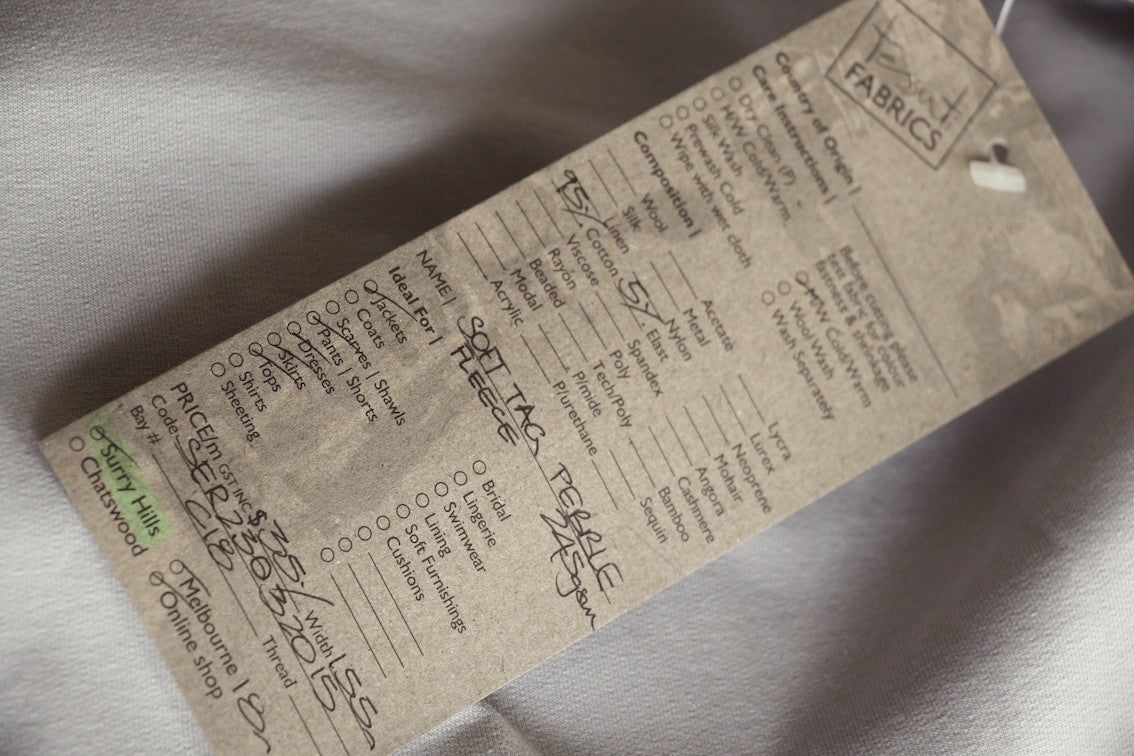 Tessuti
FABRICS
Country of Origin |
Care Instructions |
Before cutting please
test fabric for colour
fastness & shrinkage
Dry Clean (P)
H/W Cold/Warm
Silk Wash
Prewash Cold
Wipe with wet cloth
M/W Cold/Warm
Wool Wash
Wash Separately
Composition |
Wool
Silk
Linen
95% Cotton
Viscose
Rayon
Beaded
Modal
Acrylic
Acetate
Metal
Nylon
5% Elast
Spandex
Poly
Tech/Poly
P/mide
P/urethane
Lycra
Lurex
Neoprene
Mohair
Angora
Cashmere
Bambo
Sequin
NAME | SOFT TAG PEBBLE
FLEECE 245gsm
Ideal For |
Jackets
Coats
Scarves | Shawls
Pants | Shorts
Dresses
Skirts
Tops
Shirts
Sheeting
Bridal
Lingerie
Swimwear
Lining
Soft Furnishings
Cushions
PRICE/m GST INC $35/ Width 155
Code
Bay # C18 Thread
Surry Hills
Chatswood
Melbourne | 8
Online shop